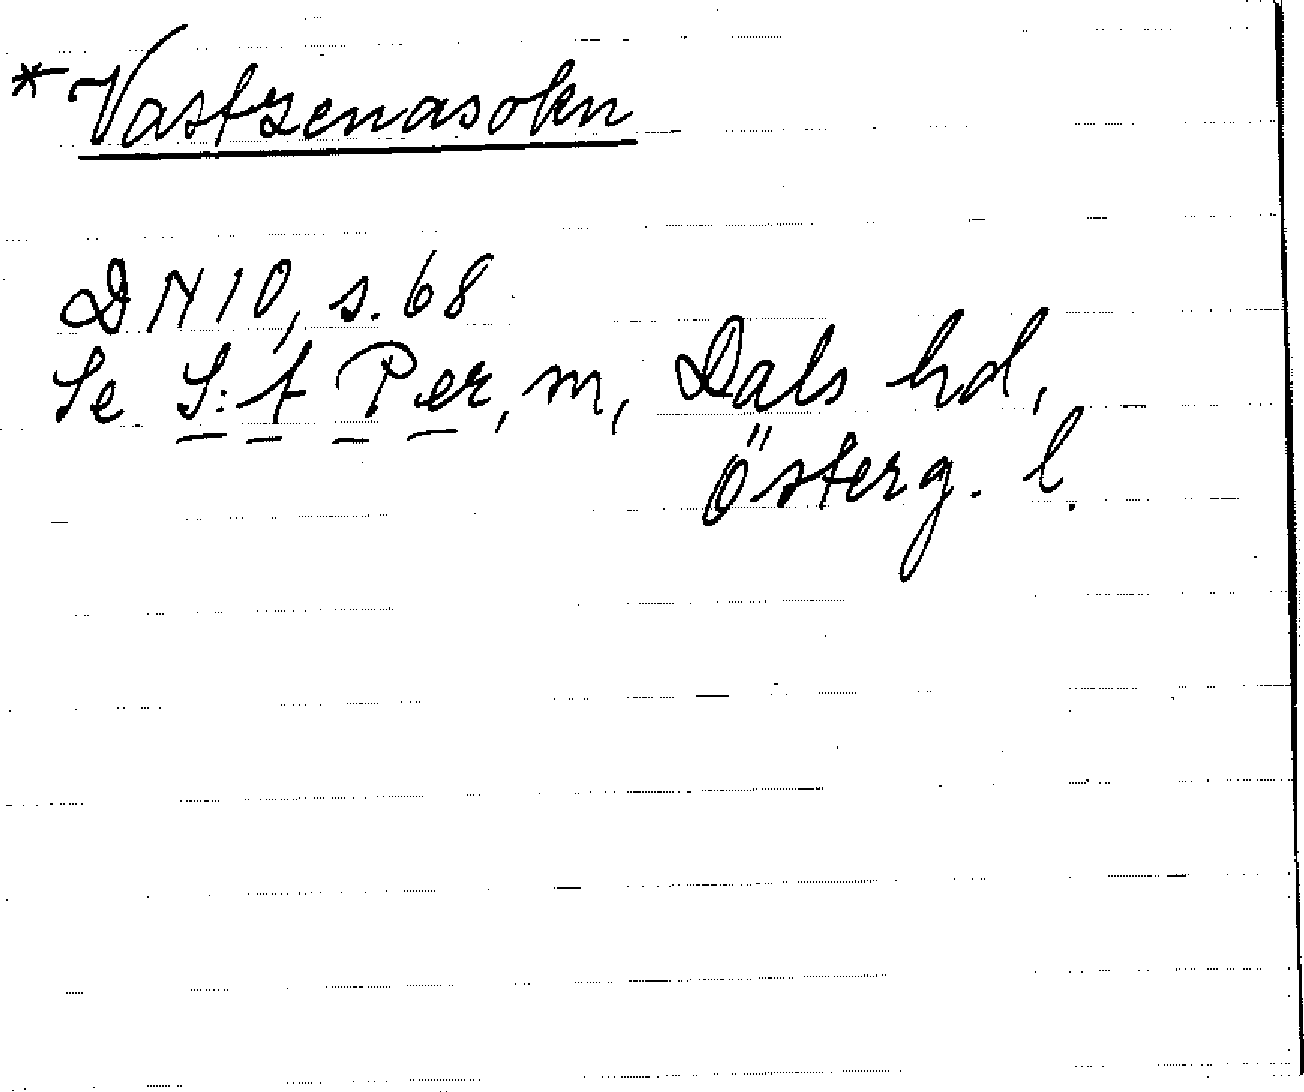 *Vastzenasokn
DN 10, s. 68
Se S:t Per, m, Dals hd,
Österg. l.